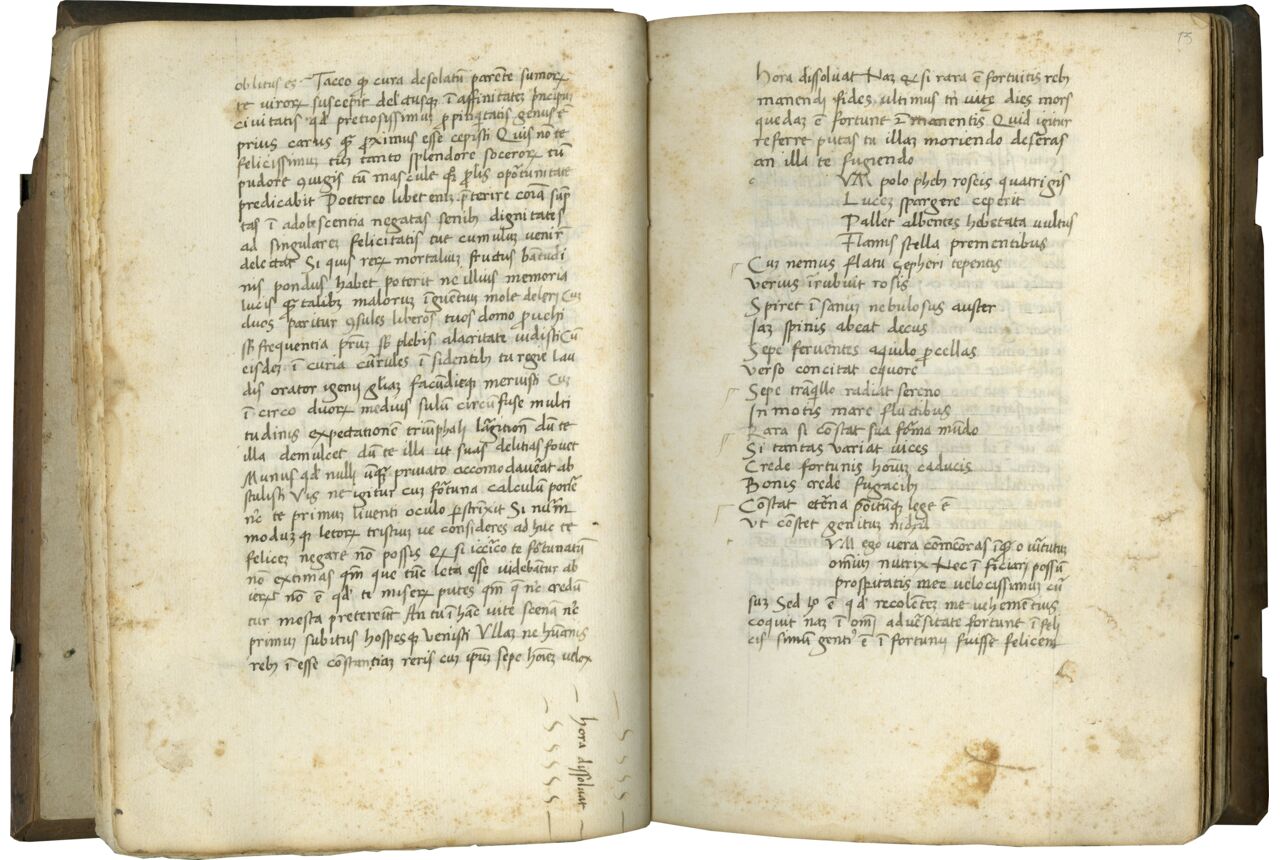 oblitus es Taceo qͥ cura desolatū parente sumorꝝ
te virorꝝ suscepit delectusqꝫ ī affinitatez pncipuz
civitatis qd̓ pretiosissimuz ꝓpiqtatis genus ē
prius carus q̄ꝫ ꝓximus esse cepisti Quis nō te
felicissimuz cuz tanto splendore socerorꝝ cuz
pudore ꝯiugis tū mascule q̄ꝫ ꝓlis oportunitate
predicabit Poetereo libet eniz p̄terire coīa sūp
tas ī adolescentia negatas senibꝫ dignitates
ad singularez felicitatis tue cumuluz venir̄
delectat Si quis rerꝝ mortaliuz fructus ba̅tudi
nis pondus habet poterit ne illius memoria
lucis q̄ꝫtalibꝫ malorum īgruentiuz mole deleri Cuz
duos paritur ꝯsules liberos tuos domo ꝓuehi
sb̄ frequentia pr̄uz sb̄ plebis alacritate vidisti Cū
eisdez ī curia curules ī sidentibꝫ tu regie lau
dis orator igenij gl̄iaz facūdieqꝫ meruisti Cuz
ī circo duorꝝ medius ꝯsulū circūfuse multi
tudinis expectationē triūphali largition̄ dū te
illa demulcet dū te illa ut suas delitias fouet
Munus qd̓ nulli unq̄ꝫ privato accomodaueat ab
stulisti Vis ne igitur cuz fortuna calculum poner̄
nc̄ te primuz liventi oculo perstrīxit Si nūm̄
moduzqꝫ letorꝝ tristiuz ve consideres ad huc te
felicez negare nō possis Qꝫ si iccirco te fortunatū
nō extimas qm̄ que tūc leta esse videbātur ab
ierūt nō ē qd̓ te miserꝝ putes qm̄ q̄ nc̄ credū
tur mosta pretereūt An tu ī hanc vite scenaz nc̄
primuz subitus hospesqꝫ venisti Vllaz ne hūanis
rebꝫ ī esse constantiaz reris cuz ipsuz sepe hoīez velox
hora dissoluat
13
hora dissoluat Naz & si rara ē fortuitis rebꝫ
manendi fides ultimus tn̄ vite dies mors
quedaz ē fortune & manentis Quid igitur
referre putas tu illaz moriendo deseras
an illa te fugiendo
c Vm polo phebꝫ roseis quatrigis
Lucez spargere ceperit
Pallet albentes hebetata vultus
Flamis stella prementibus
Cuz nemus flatu zepheri tepentis
Verius īrubuit rosis
Spiret ī sanuz nebulosus auster
Iaz spinis abeat decus
Sepe ferventes aquilo ꝓcellas
Verso concitat equore
Sepe tranq̇llo radiat sereno
In motis mare fluctibus
Rara si constat sua forma mūdo
Si tantas variat vices
Crede fortunis hoīuz caducis
Bonis crede fugacibꝫ
Constat eterna positumqꝫ lege ē
Vt constet genituz nichil
Vm ego vera comēoras inq̄ꝫ o virtutuz
omniuz nutrix Nec ī ficiari possuz
prosperitatis mee velocissimuz cur̄
suz Sed hͦ ē qd̓ recolentez me vehementius
coquit naz ī omī adversitate fortune ī feli
cissimuz genus ē ī fortunij fuisse felicem